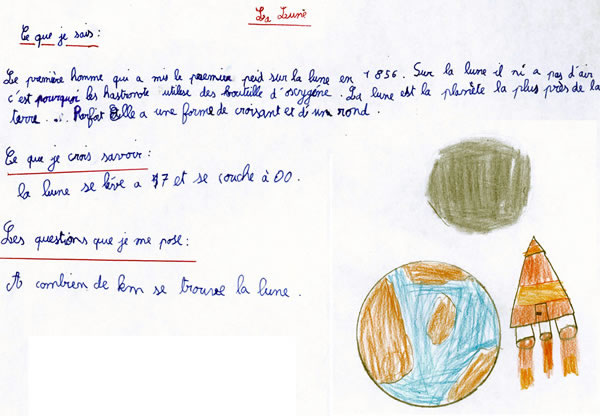 La Lune
Ce que je sais :
Le première homme qui a mis le premier pied sur la lune en 1856. Sur la lune il ni a pas d'air
c'est pourquoi les hastronote utilise des bouteille d'oxygène. La lune est la planète la plus près de la
terre ... Parfoi elle a une forme de croisant et d'un rond.
Ce que je crois savoir :
la lune se lève a 17 et se couche à 00.
Les questions que je me pose :
A combien de km se trouve la lune.